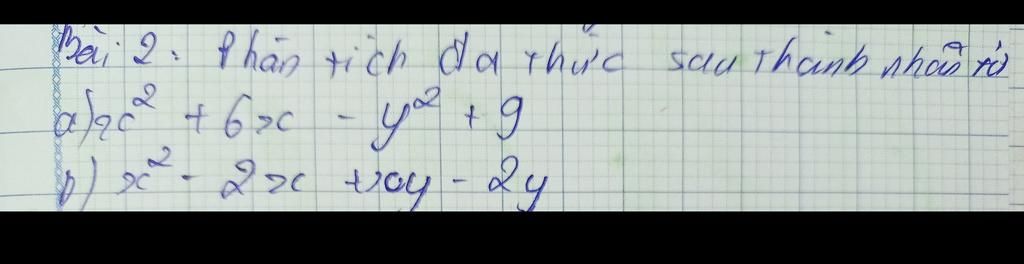 Bài 2: Phân tích đa thức sau thành nhân tử
a) x² + 6x - y² + 9
b) x² - 2x + xy - 2y